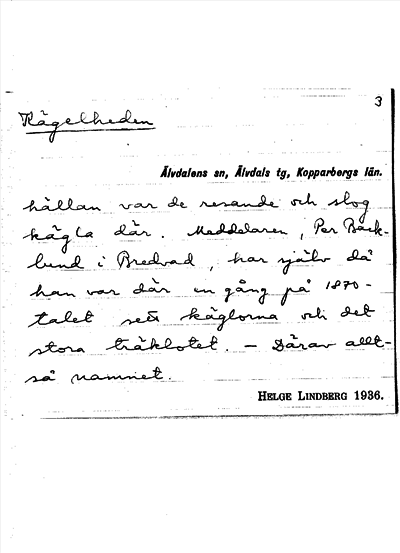 3
Kägelheden
Älvdalens sn, Älvdals tg, Kopparbergs län.
hällan var de resande och slog
kägla där. Meddelaren, Per Bäck-
lund i Bredvad, har själv då
han var där en gång på 1870-
talet sett käglorna och det
stora träklotet. – Därav allt-
så namnet.
HELGE LINDBERG 1936.